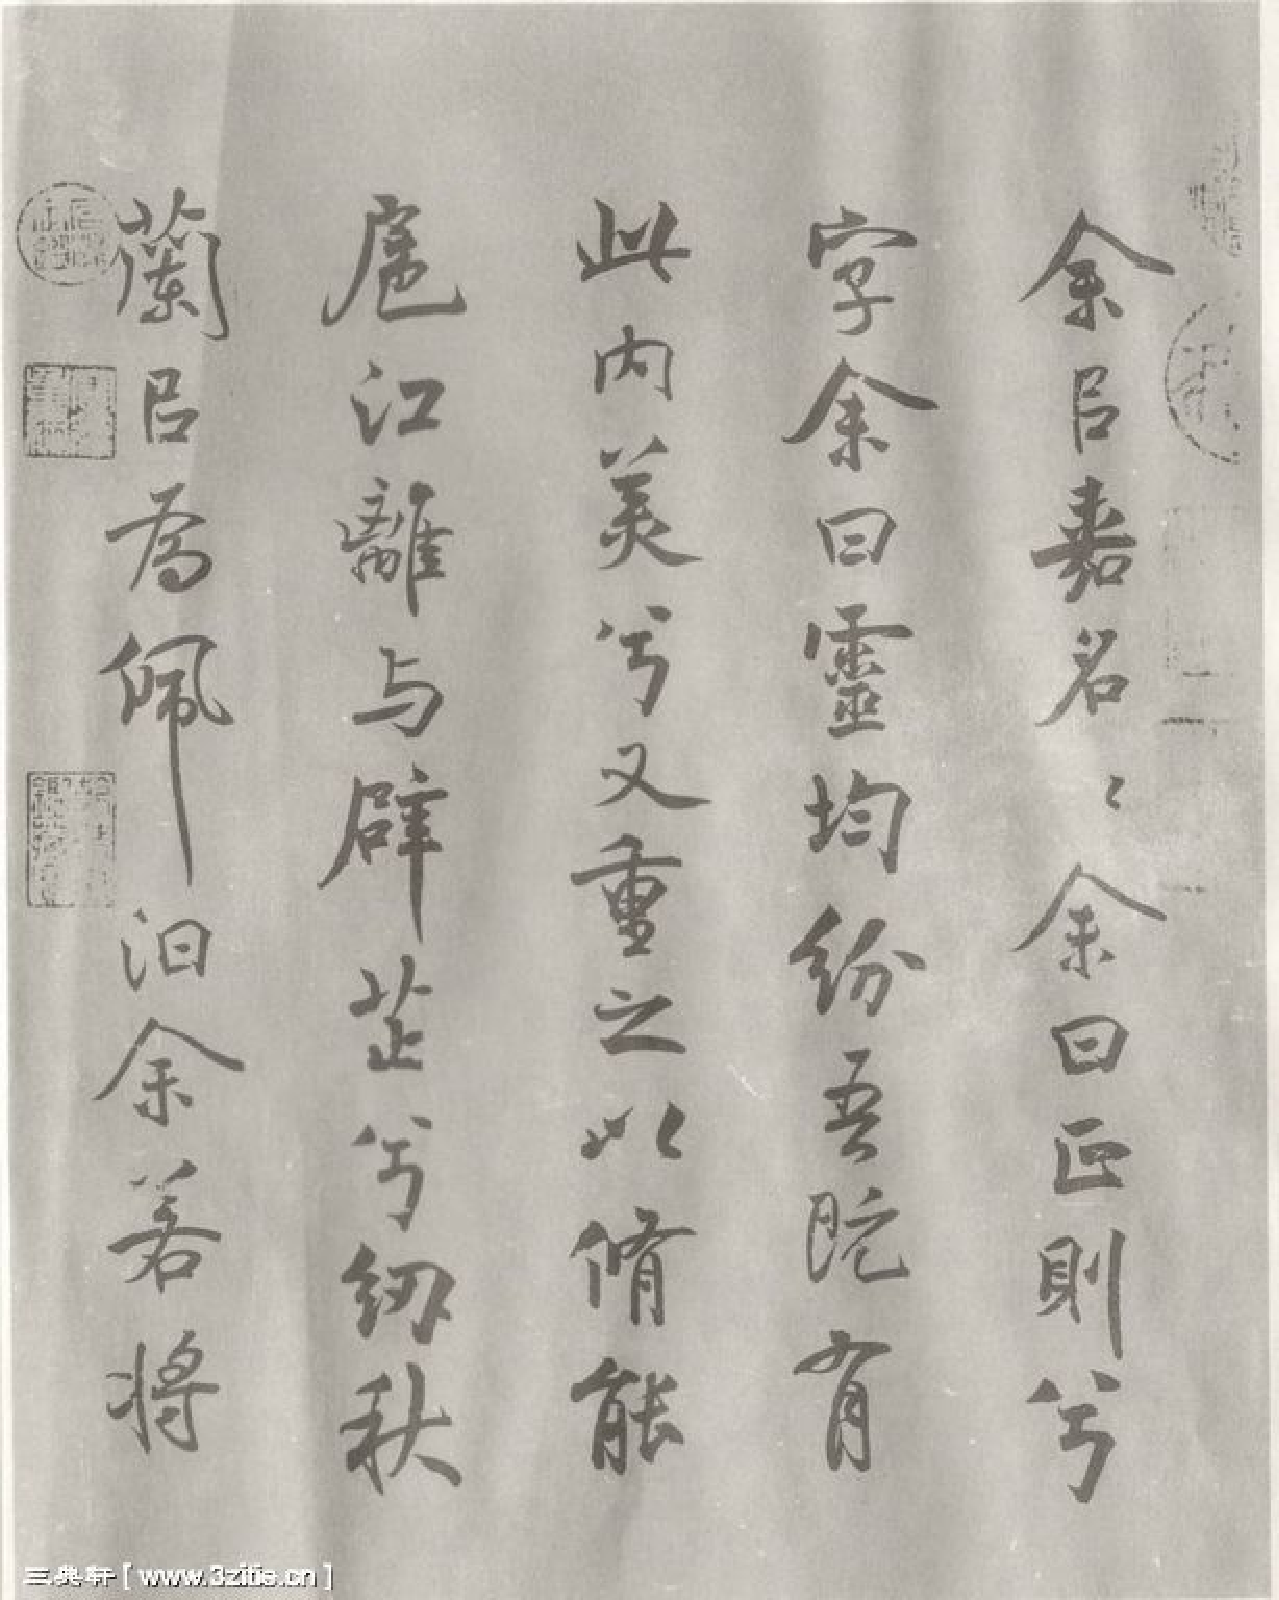 余㠯嘉名〻余曰正則兮
字余曰靈均紛吾既有
此内美兮又重之以脩能
扈江離与辟芷兮紉秋
蘭㠯為佩汩余若將
三典轩[www.3zitie.cn]